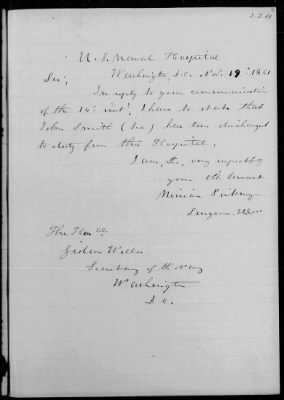 U. S. Naval Hospital
Washington, D.C. Nov. 19th 1861
Sir,
In reply to your communication
of the 14th inst, I have to state that
John Smith (Sea) has been discharged
to duty from this Hospital.
I am, Sir, very respectfully
your obt. servant
Ninian Pinkney
Surgeon, USN
The Honble
Gideon Welles
Secretary of the Navy
Washington
D.C.